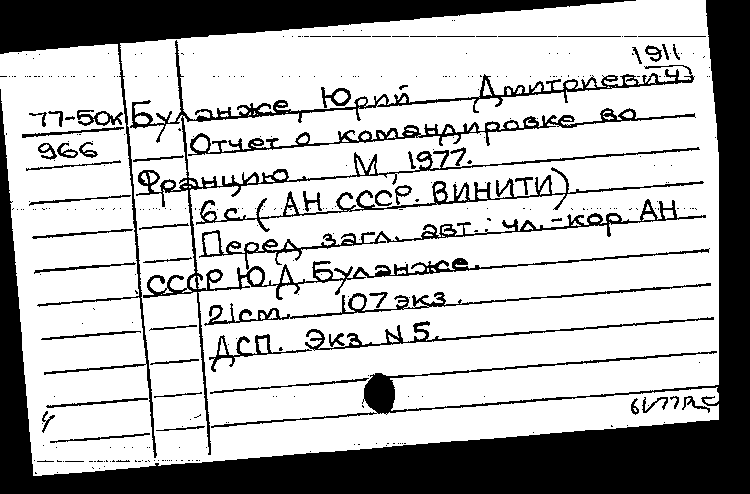 1911
77-50к Буланже, Юрий Дмитриевич
966 Отчет о командировке во
Францию. М., 1977.
6 с. (АН СССР. ВИНИТИ).
Перед загл. авт.: чл.-кор. АН
СССР Ю.Д. Буланже.
21 см. 107 экз.
ДСП. Экз. N 5.